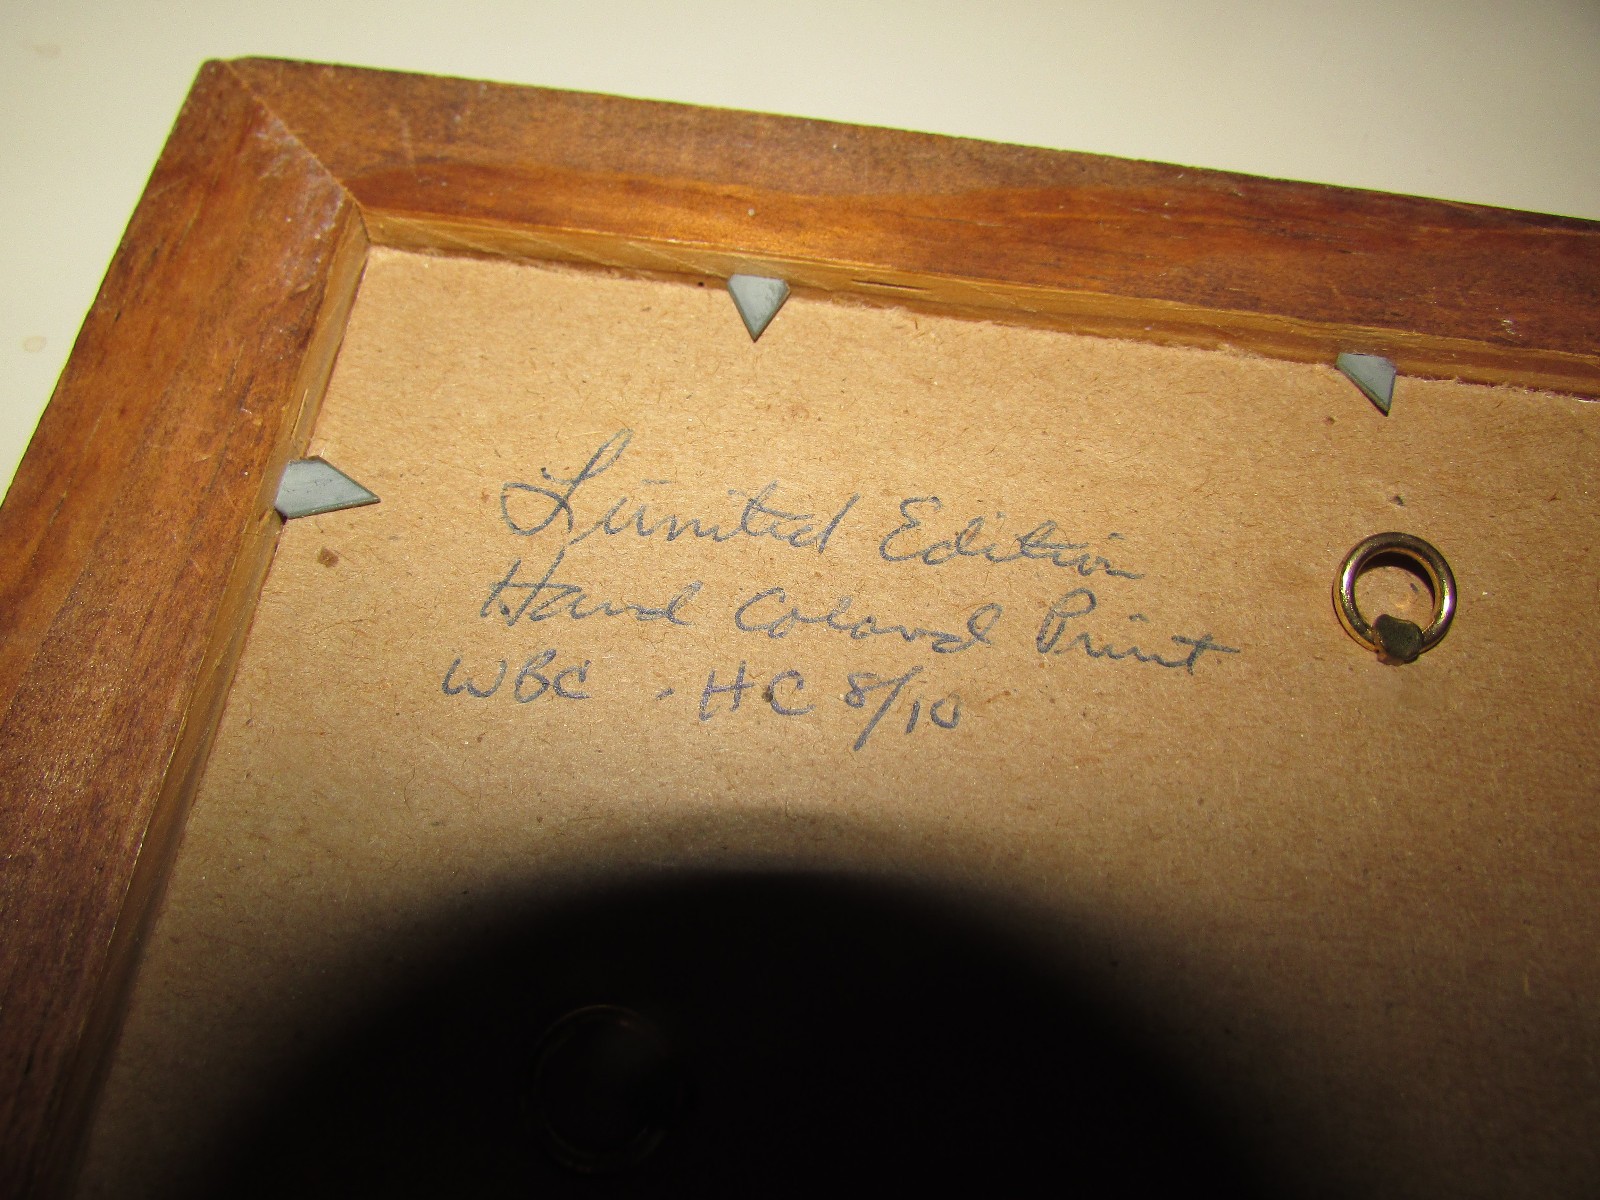 Limited Edition
Hand Colored Print
WBC - HC 8/10